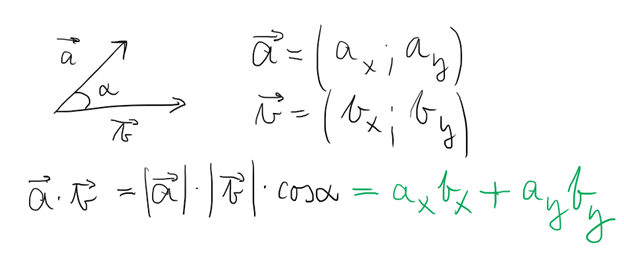 a⃗
α
b⃗
a⃗ = (aₓ; a_y)
b⃗ = (bₓ; b_y)
a⃗ · b⃗ = |a⃗| · |b⃗| · cosα = aₓbₓ + a_yb_y